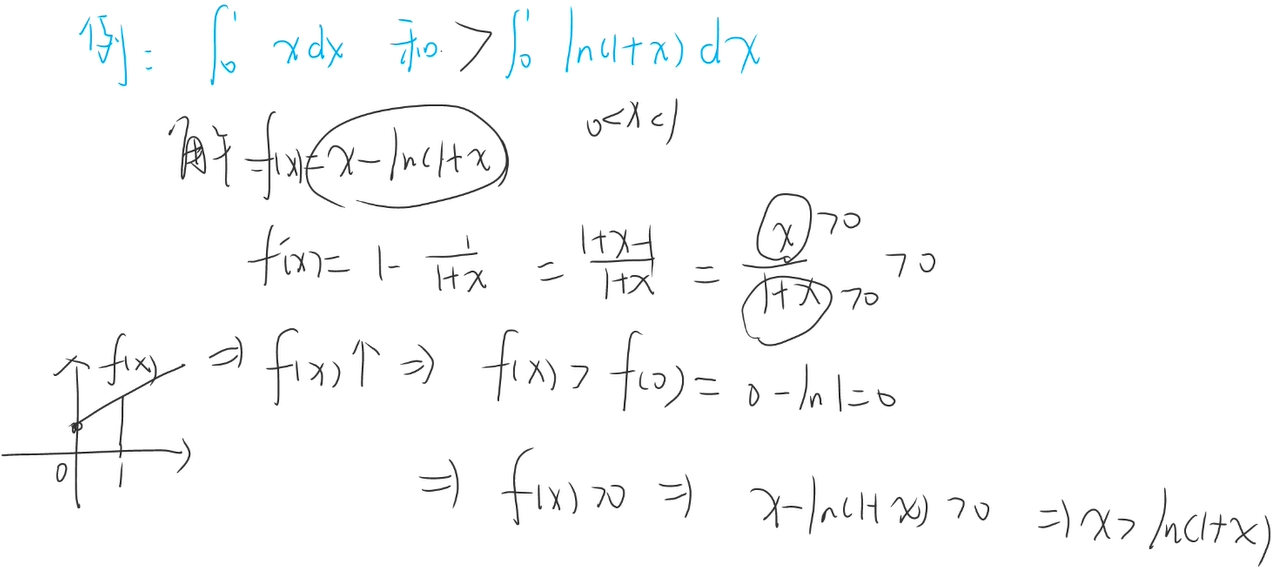 例: ∫₀¹ x dx 和 > ∫₀¹ ln(1+x) dx
解 f(x)=x-ln(1+x) 0<x<1
f'(x)=1-1/(1+x) = (1+x-1)/(1+x) = x/(1+x) >0 >0 >0
f(x) ⇒ f(x)↑ ⇒ f(x)>f(0)=0-ln1=0
0 1 ⇒ f(x)>0 ⇒ x-ln(1+x)>0 ⇒ x>ln(1+x)